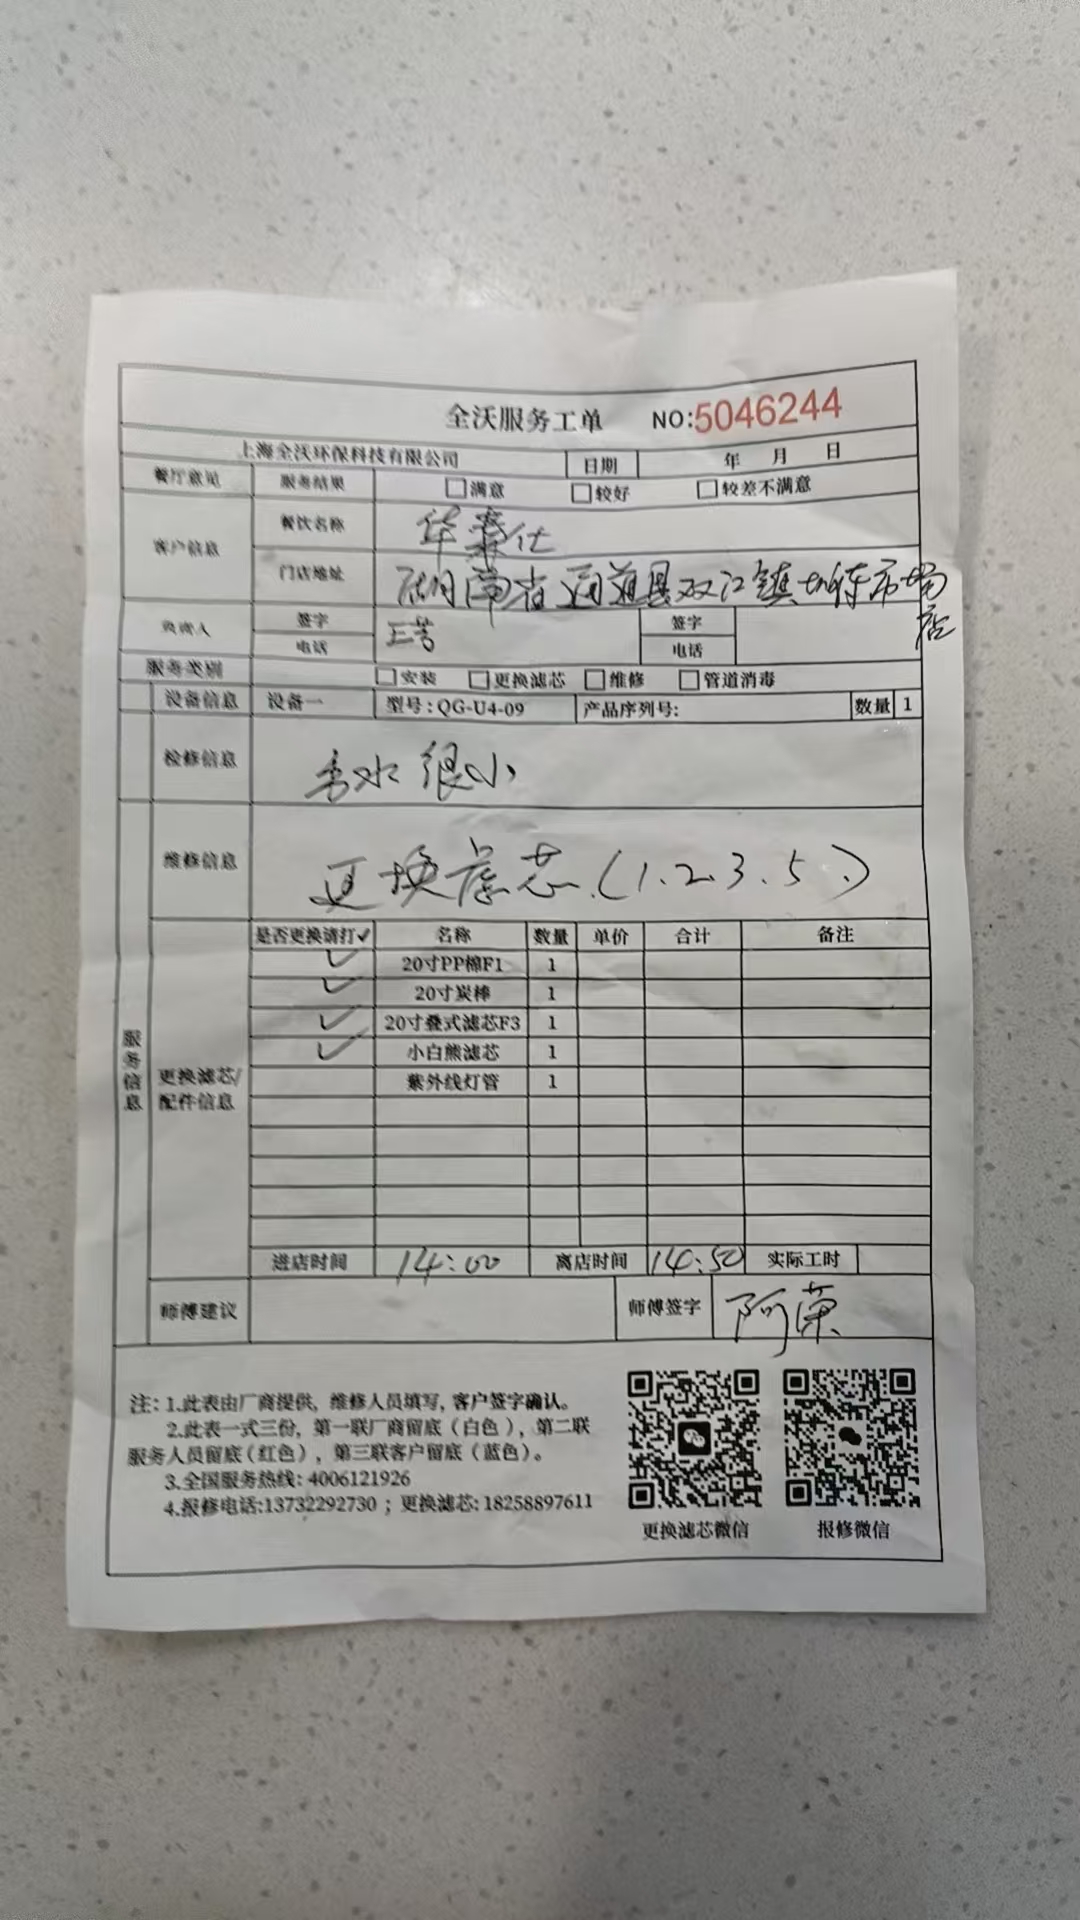 全沃服务工单 NO:5046244
上海全沃环保科技有限公司 日期 年 月 日
餐厅意见 服务结果 □满意 □较好 □较差不满意
客户信息 餐饮名称 华莱仕
门店地址 湖南省通道县双江镇 市场店
负责人 签字 王芳 签字
电话 电话
服务类别 □安装 □更换滤芯 □维修 □管道消毒
设备信息 设备一 型号:QG-U4-09 产品序列号: 数量 1
检修信息 水很小
维修信息 更换滤芯(1.2.3.5.)
服务信息
更换滤芯/配件信息
是否更换请打✓ 名称 数量 单价 合计 备注
✓ 20寸PP棉F1 1
✓ 20寸炭棒 1
✓ 20寸叠式滤芯F3 1
✓ 小白熊滤芯 1
紫外线灯管 1
进店时间 14:00 离店时间 14:50 实际工时
师傅建议 师傅签字 阿荣
注: 1.此表由厂商提供, 维修人员填写, 客户签字确认。
2.此表一式三份, 第一联厂商留底(白色), 第二联
服务人员留底(红色), 第三联客户留底(蓝色)。
3.全国服务热线: 4006121926
4.报修电话:13732292730 ; 更换滤芯: 18258897611
更换滤芯微信 报修微信